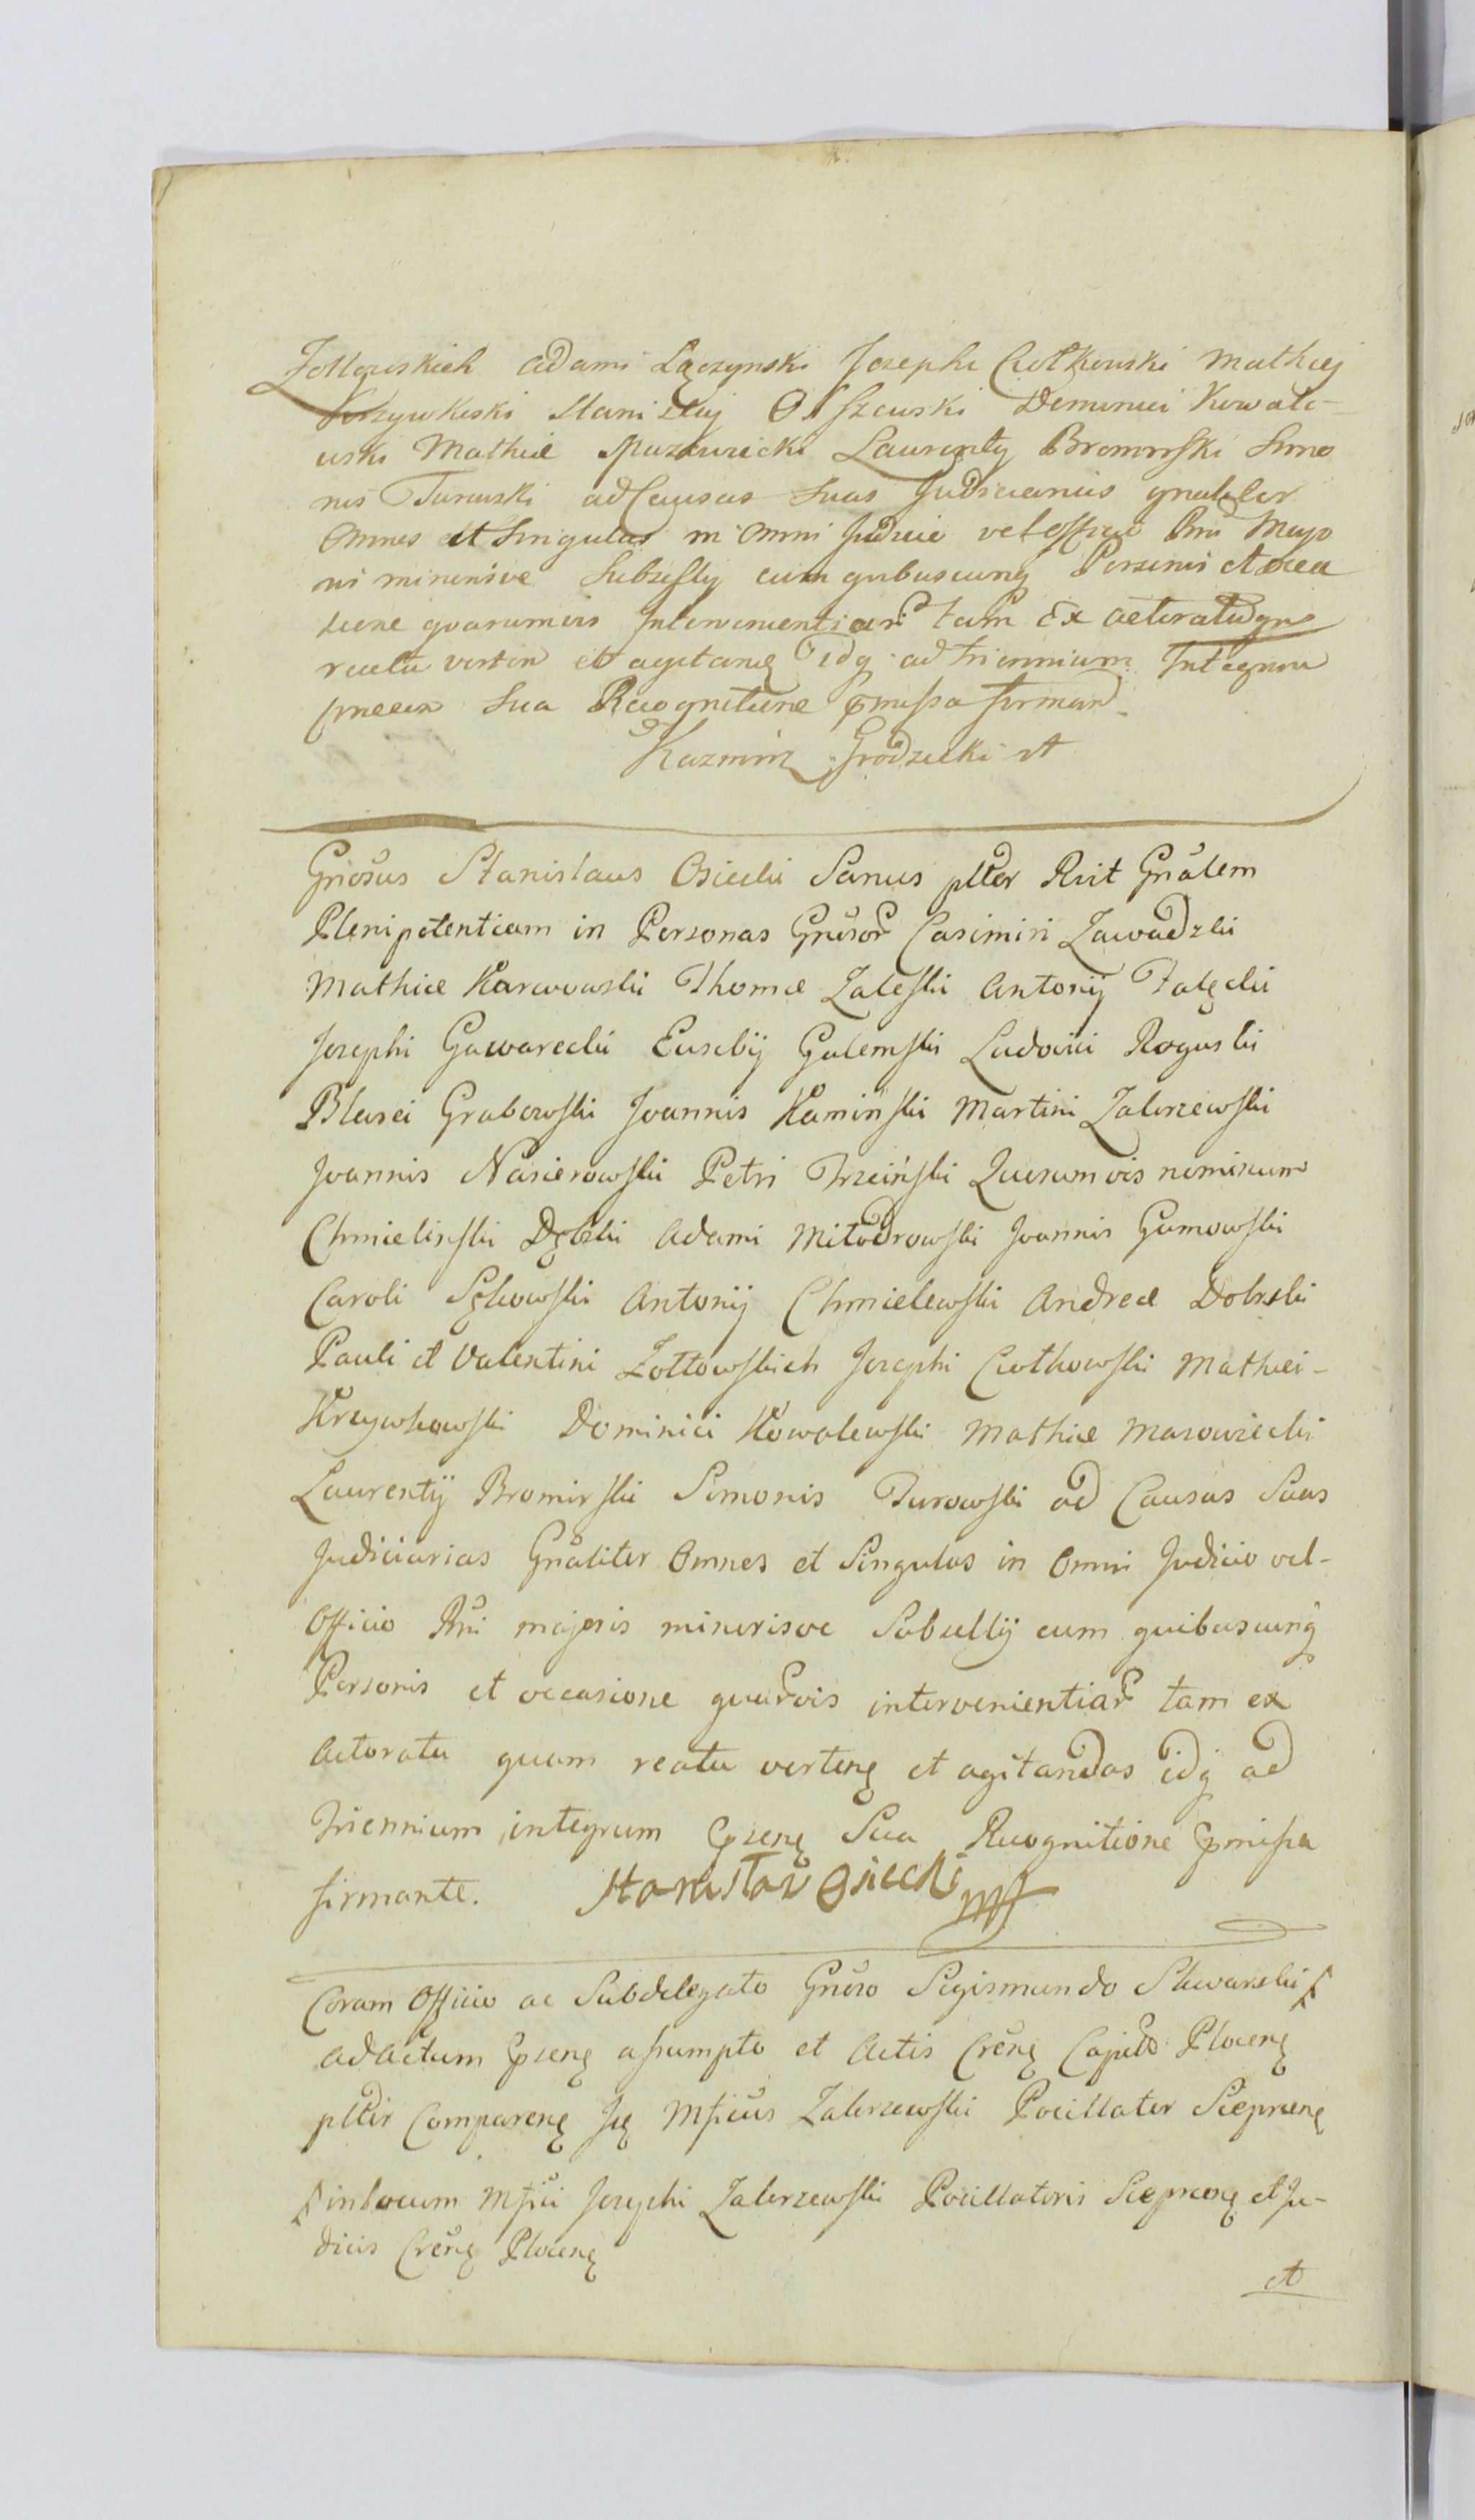 Zołtowskich Adami Łączynski Josephi Ciołkowski Mathiej
Krzywkoski Stanislaj Olszewski Dominici Kowale-
wski Mathiæ Mazowiecki Laurenty Bromirski Simo
nis Turowski ad Causas Suas Judiciarias gnaliter
Omnes et Singulas in Omni Judicio vel Officio Rni Majo
ris minorisve Subselly cum quibuscunq Personis et occa
sione quarumvis Intervenientiar tam Ex actoratu qm
reatu verten et agitand idq ad triennium Integrum
pneen Sua Recognitione pmissa firman
Kazmirz Grodzicki mp
Gnosus Stanislaus Osiecki Sanus plter Rvit Gnalem
Plenipotentiam in Personas Gnusor Casimiri Zawadzki
Mathiæ Karwowski Thomæ Zaleski Antonij Falęcki
Josephi Gawarecki Eusebij Golemski Ludovici Roguski
Blasei Grabowski Joannis Kamiński Martini Zakrzewski
Joannis Nasierowski Petri Trzciński Quorumvis nominum
Chmielinski Dębski Adami Mitodrowski Joannis Gumowski
Caroli Sękowski Antonij Chmielewski Andreæ Dobrski
Pauli et Valentini Zołtowskich Josephi Ciołkowski Mathiei-
Krzywkowski Dominici Kowalewski Mathiæ Mazowiecki
Laurentij Bromirski Simonis Turowski ad Causas Suas
Judiciarias Gnaliter Omnes et Singulas in Omni Judicio vel-
Officio Rni majoris minorisve Subsellij cum quibuscunq
Personis et occasione quarvis intervenientiar tam ex
Actoratu quam reatu verteng et agitandas idq ad
Triennium integrum pseng Sua Recognitione pmissa
firmante. Stanisław Osiecki mp
Coram Officio ac Subdelegato Gnoso Sigismundo Skwarski
ad Actum pseng assumpto et Actis Creng Capitlo Ploceng
plter Compareng Mficus Zakrzewski Pocillator Sieprceng
in locum Mfici Josephi Zakrzewski Pocillatoris Sieprceng et Ju-
dicis Creng Ploceng
et